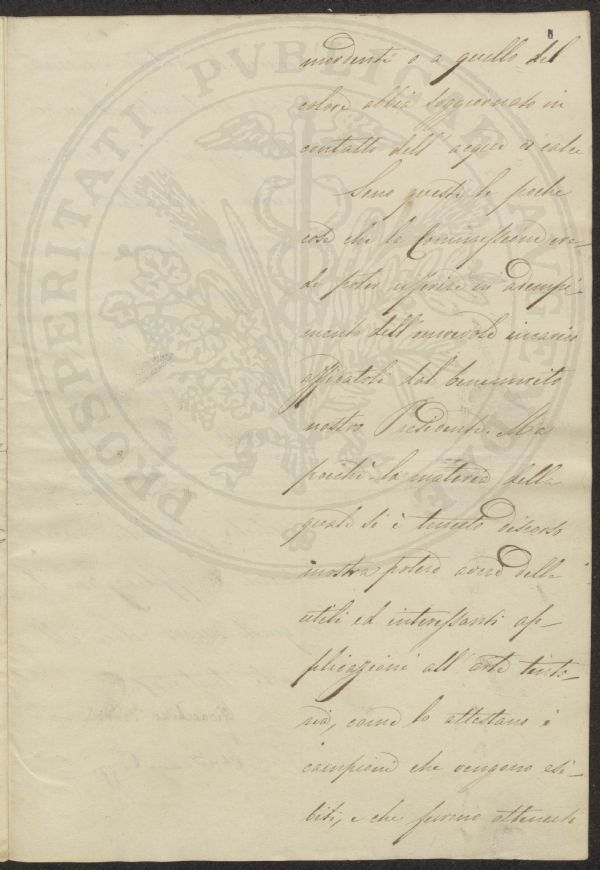 mordenti o a quello del
colore abbia soggiornato in
contatto dell' acqua di calce
Sono queste le poche
cose che la Commissione cre-
de poter riferire in adempi-
mento dell' onorevole incarico
affidatole dal benemerito
nostro Presidente. Ma
poichè la materia della
quale si è tenuto discorso
mostra potere avere delle
utili ed interessanti ap-
plicazioni all' arte tinto-
ria, come lo attestano i
campioni che vengono esi-
biti, e che furono ottenuti
PROSPERITATI PVBLICAE